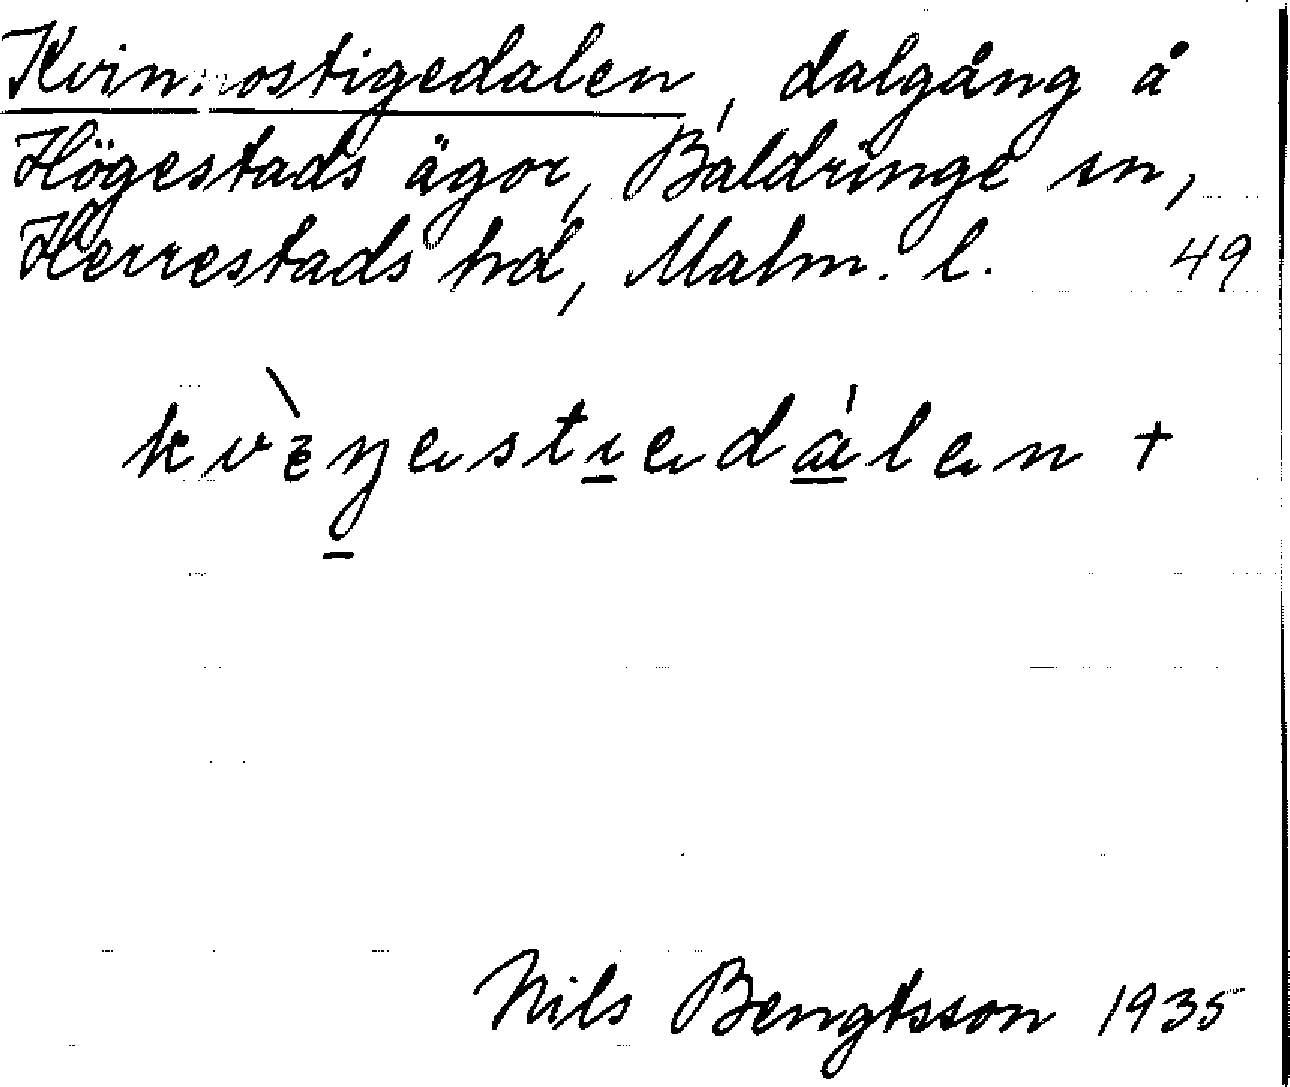 Kvinnostigedalen, dalgång å
Högestads ägor, Baldringe sn,
Herrestads hd, Malm. l. 49
Nils Bengtsson 1935